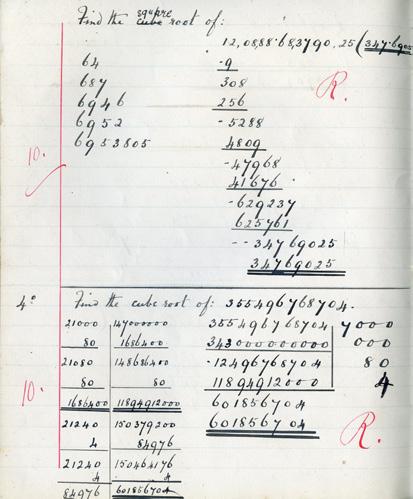 Find the cube square root of:
12,08,88.68,3790,25 (347.6905
64 -9
687 308
6946 256
6952 -5288
6953805 4809
10. -47968
41676
-629237
625761
--34769025
34769025
R.
4° Find the cube root of: 355496768704.
21000 147000000 355496768704 7000
80 1686400 343000000000 000
21080 148686400 -12496768704 80
80 80 11894912000 4
1686400 11894912000 601856704
21240 150379200 601856704
4 84976
21240 150464176
4 4
84976 601856704
10.
R.